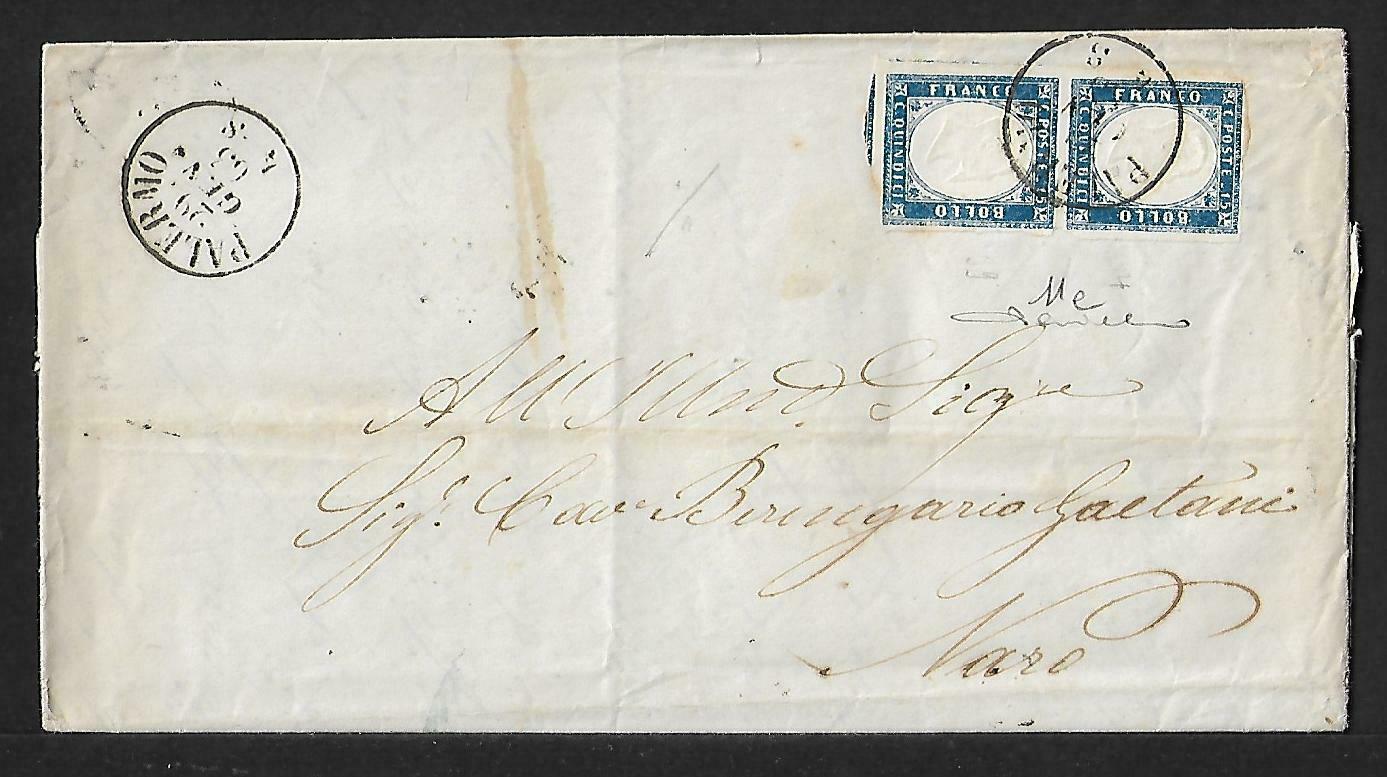 PALERMO
FRANCO
C. QUINDICI
C. POSTE. 15
BOLLO
FRANCO
C. QUINDICI
C. POSTE. 15
BOLLO
All Illmo Sigre
Sigr. Cave Beringario Gaetani
Naro